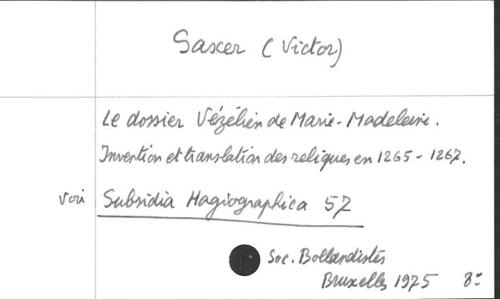 Saxer (Victor)
Le dossier Vézélien de Marie-Madeleine.
Invention et translation des reliques en 1265-1267.
voir Subsidia Hagiographica 57
Soc. Bollandistes
Bruxelles 1975 8°